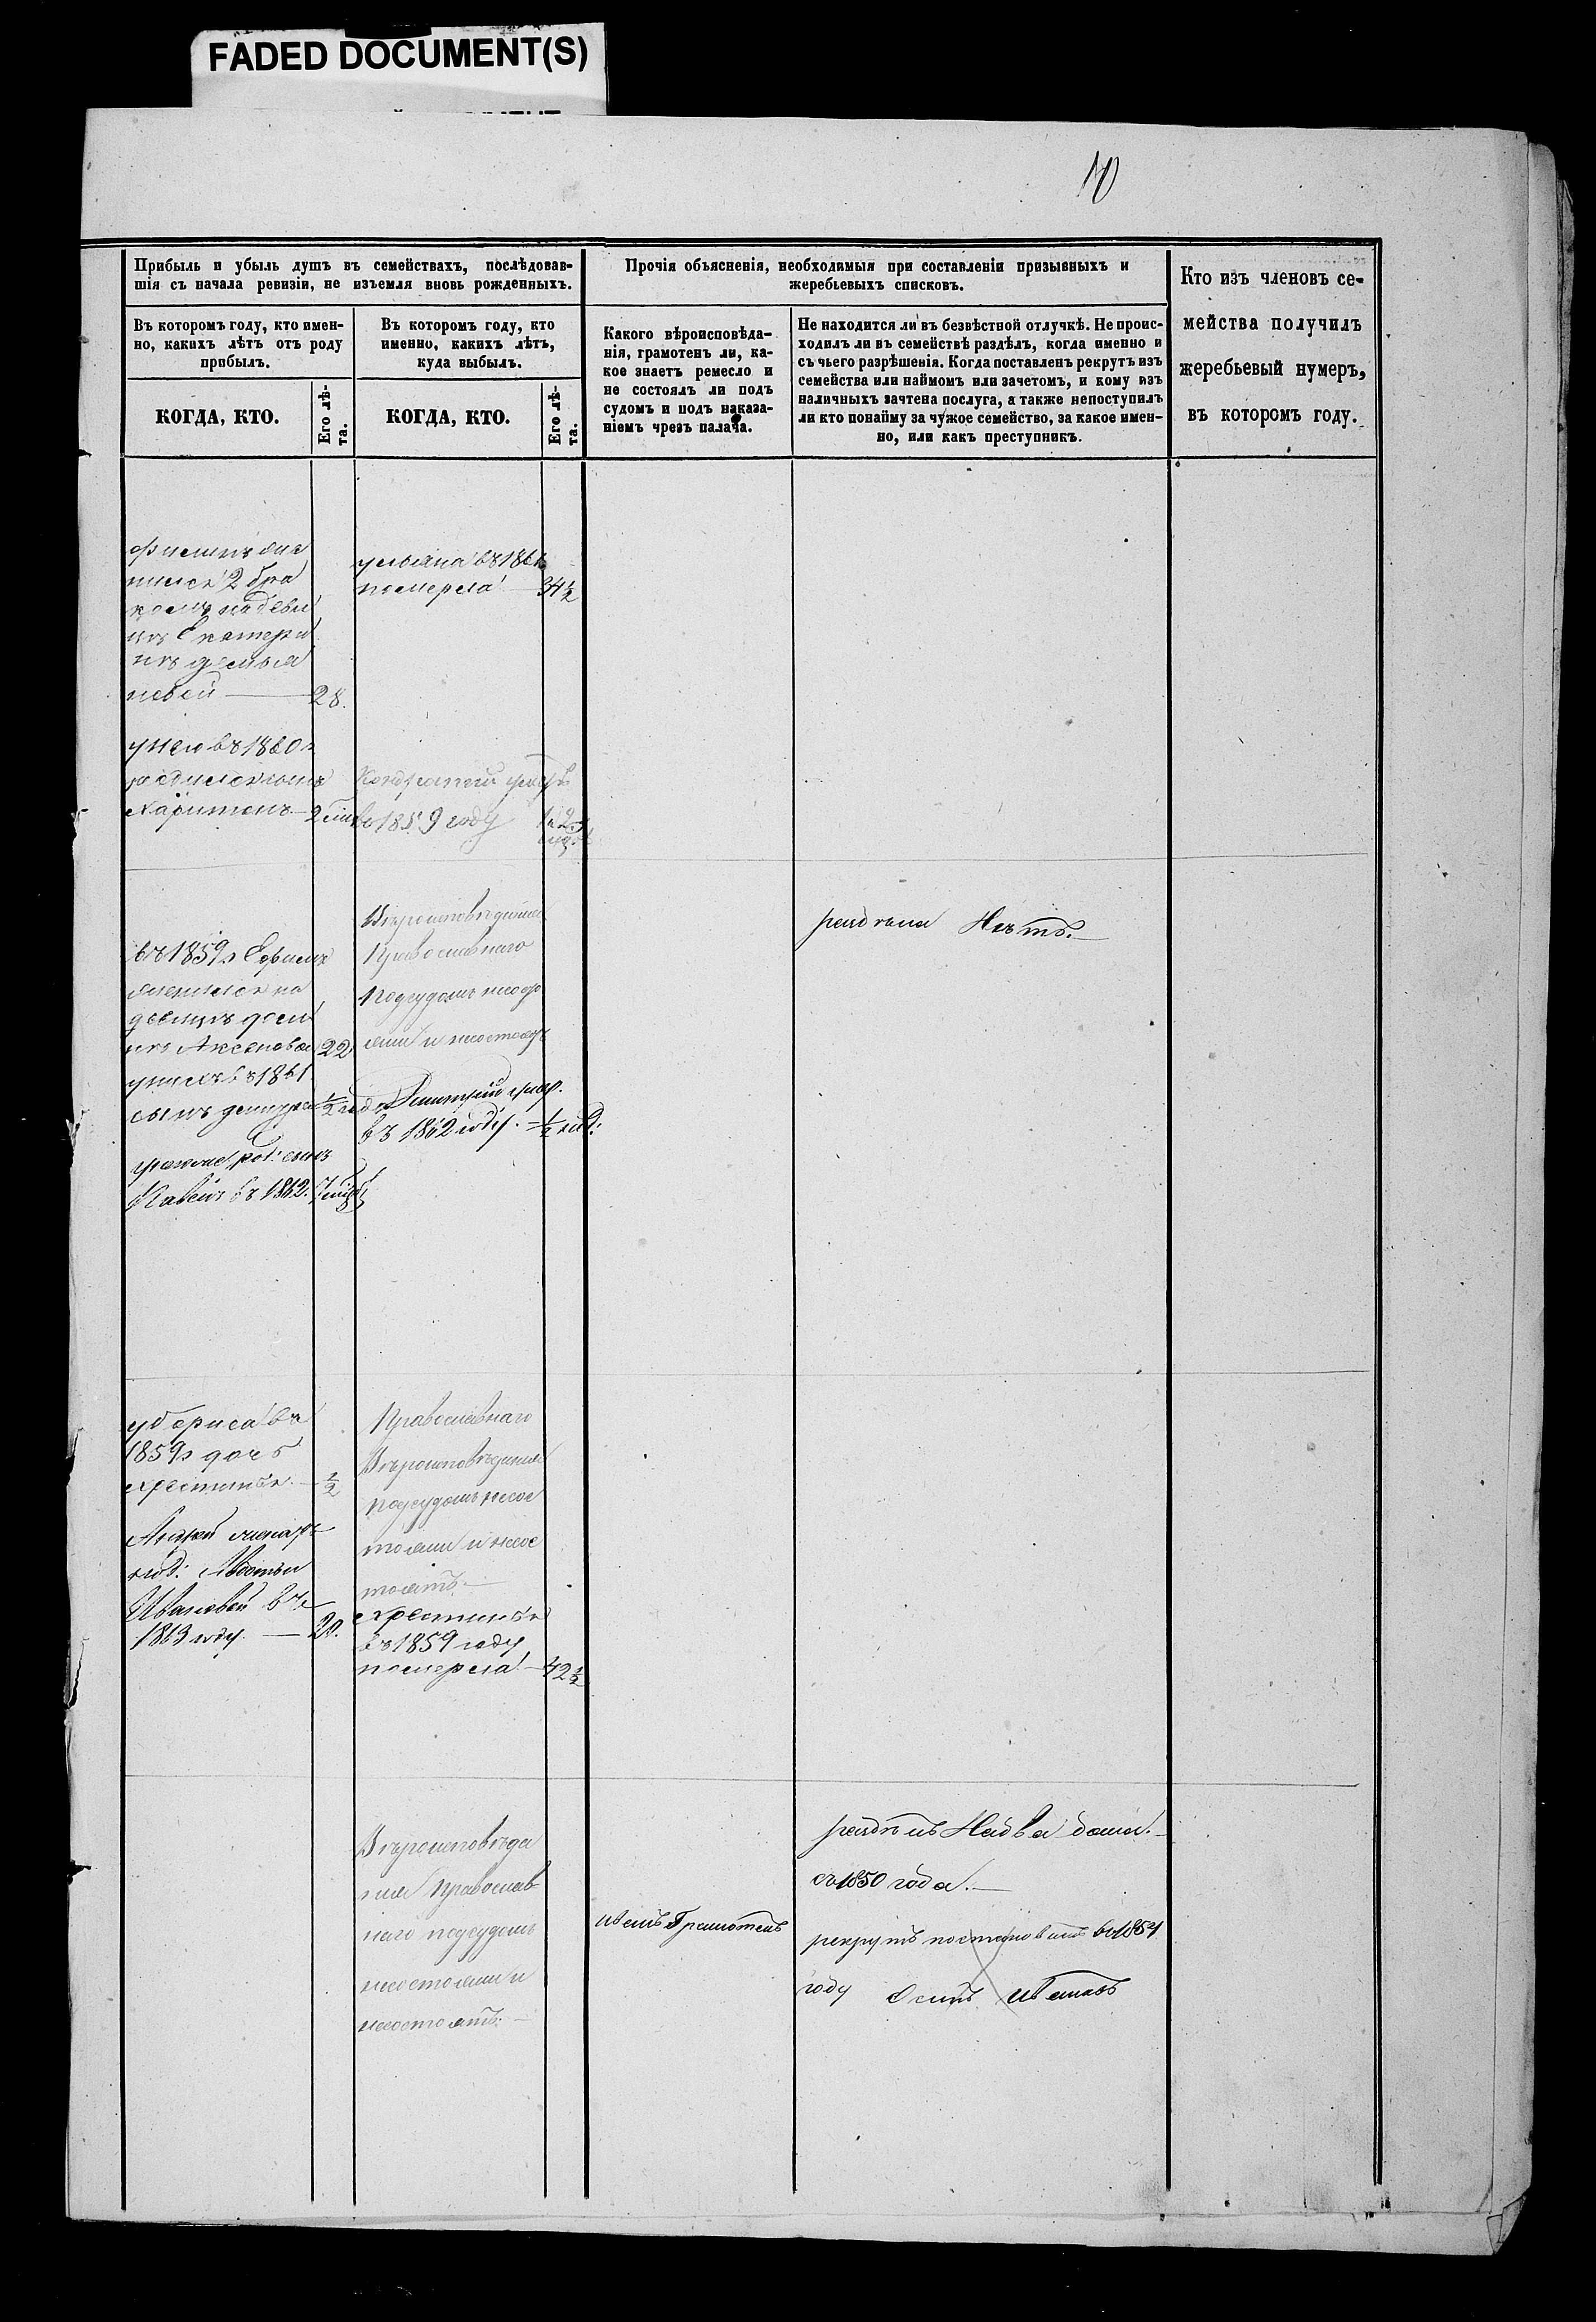 FADED DOCUMENT(S)
10
Прибыль и убыль душъ въ семействахъ, послѣдовав-
шія съ начала ревизіи, не изъемля вновь рожденныхъ.
Прочія объясненія, необходимыя при составленіи призывныхъ и
жеребьевыхъ списковъ.
Кто изъ членовъ се-
мейства получилъ
жеребьевый нумеръ,
въ которомъ году.
Въ которомъ году, кто имен-
но, какихъ лѣтъ отъ роду
прибылъ.
Въ которомъ году, кто
именно, какихъ лѣтъ,
куда выбылъ.
Какого вѣроисповѣда-
нія, грамотенъ ли, ка-
кое знаетъ ремесло и
не состоялъ ли подъ
судомъ и подъ наказа-
ніемъ чрезъ палача.
Не находится ли въ безвѣстной отлучкѣ. Не проис-
ходилъ ли въ семействѣ раздѣлъ, когда именно и
съ чьего разрѣшенія. Когда поставленъ рекрутъ изъ
семейства или наймомъ или зачетомъ, и кому изъ
наличныхъ зачтена послуга, а также непоступилъ
ли кто понайму за чужое семейство, за какое имен-
но, или какъ преступникъ.
КОГДА, КТО.
Его лѣ-
та.
КОГДА, КТО.
Его лѣ-
та.
нился 2 бра
комъ на деви
цѣ Екатери
нѣ демья
новой — 28.
ульяна въ
померла — 34½
у него въ 1860 г
родился сынъ
Харитонъ — 2
Кондратий умеръ
въ 1859 году
въ 1859 г Ефимъ
женился на
девицѣ
нѣ Аксеновой 22
у нихъ въ 1861
сынъ дмитрей ½ года
сынъ
въ 1862.
Вѣроисповѣдания
Православнаго
Подсудомъ несос
тояли и несостоятъ
Дмитрий умер.
въ 1862 году. — ½ год:
раздѣла Нѣтъ. —
у бориса въ
1859 г дочь
христинья — ½
Андрей
Авдотьи
Ивановой въ
1863 году. — 20.
Православнаго
Вѣроисповѣдания
подсудомъ несос
тояли и несос
тоятъ. —
христинья
въ 1859 году
померла — 42½
Вѣроисповѣда
ния Православ
наго подсудомъ
несостояли и
несостоятъ. —
Грамотенъ
раздѣлъ На два дома. —
съ 1850 года. —
рекрутъ въ 1854
году Осипъ